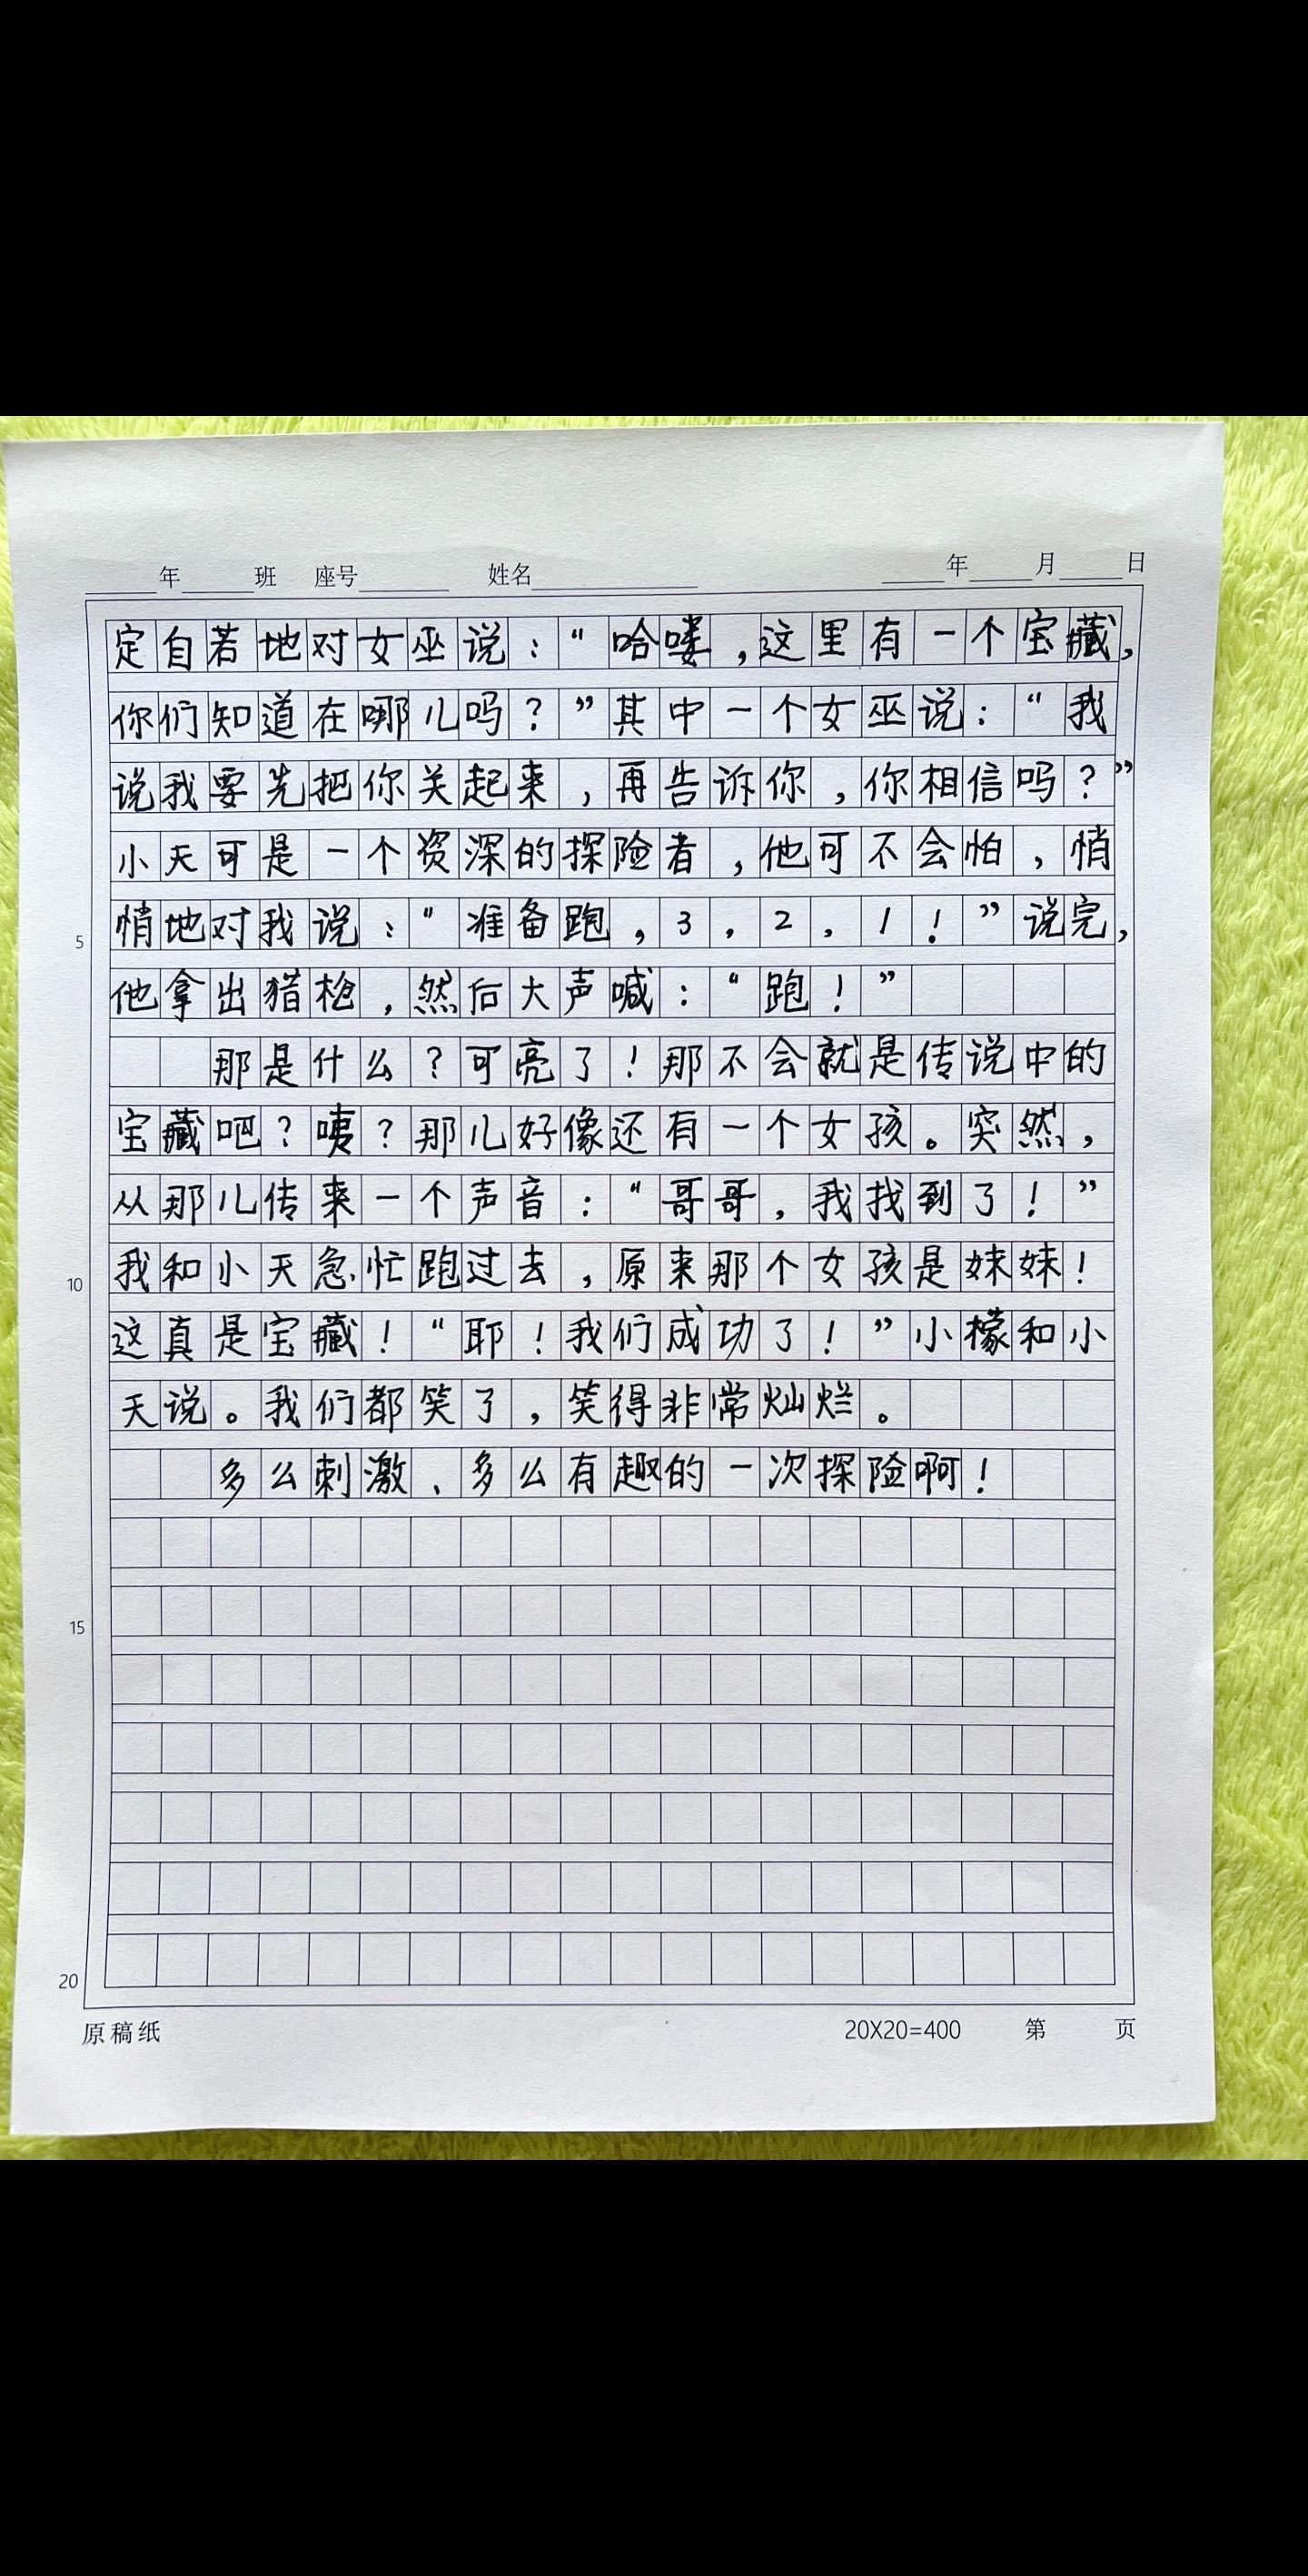 年 班 座号 姓名 年 月 日
定自若地对女巫说：“哈喽，这里有一个宝藏，
你们知道在哪儿吗？”其中一个女巫说：“我
说我要先把你关起来，再告诉你，你相信吗？”
小天可是一个资深的探险者，他可不会怕，悄
悄地对我说：“准备跑，3，2，1！”说完，
5
他拿出猎枪，然后大声喊：“跑！”
那是什么？可亮了！那不会就是传说中的
宝藏吧？咦？那儿好像还有一个女孩。突然，
从那儿传来一个声音：“哥哥，我找到了！”
我和小天急忙跑过去，原来那个女孩是妹妹！
10
这真是宝藏！“耶！我们成功了！”小檬和小
天说。我们都笑了，笑得非常灿烂。
多么刺激、多么有趣的一次探险啊！
15
20
原稿纸 20X20=400 第 页